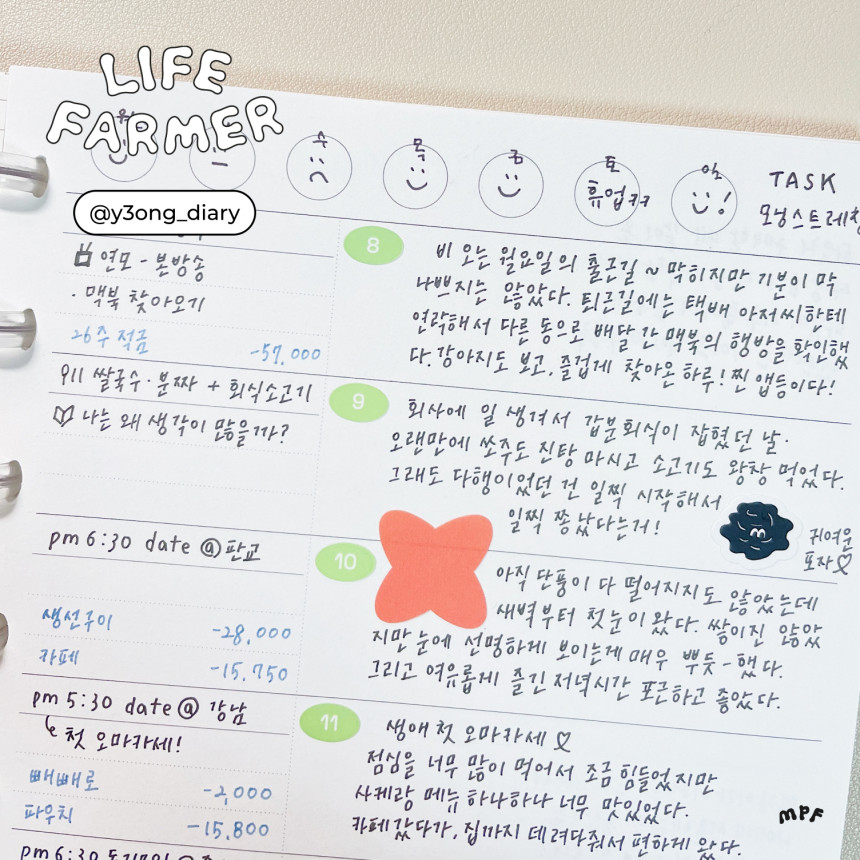 LIFE
FARMER
@y3ong_diary
수 목 금 토 일
휴업ㅋㅋ
TASK
모닝스트레칭
연모 - 본방송
· 맥북 찾아오기
26주 적금 -57,000
8
비 오는 월요일의 출근길 ~ 막히지만 기분이 막
나쁘지는 않았다. 퇴근길에는 택배 아저씨한테
연락해서 다른 동으로 배달 간 맥북의 행방을 확인했
다. 강아지도 보고, 즐겁게 찾아온 하루! 찐 앱등이다!
911 쌀국수 · 분짜 + 회식소고기
나는 왜 생각이 많을까?
9
회사에 일 생겨서 갑분회식이 잡혔던 날.
오랜만에 쏘주도 진탕 마시고 소고기도 왕창 먹었다.
그래도 다행이었던 건 일찍 시작해서
일찍 쫑났다는거!
귀여운
포자♡
pm 6:30 date @판교
생선구이 -28,000
카페 -15,750
10
아직 단풍이 다 떨어지지도 않았는데
새벽부터 첫눈이 왔다. 쌓이진 않았
지만 눈에 선명하게 보이는게 매우 뿌듯-했다.
그리고 여유롭게 즐긴 저녁시간 포근하고 좋았다.
pm 5:30 date @ 강남
첫 오마카세!
빼빼로 -2,000
파우치 -15,800
11
생애 첫 오마카세 ♡
점심을 너무 많이 먹어서 조금 힘들었지만
사케랑 메뉴 하나하나 너무 맛있었다.
카페 갔다가, 집까지 데려다줘서 편하게 왔다.
MPF
pm 6:30